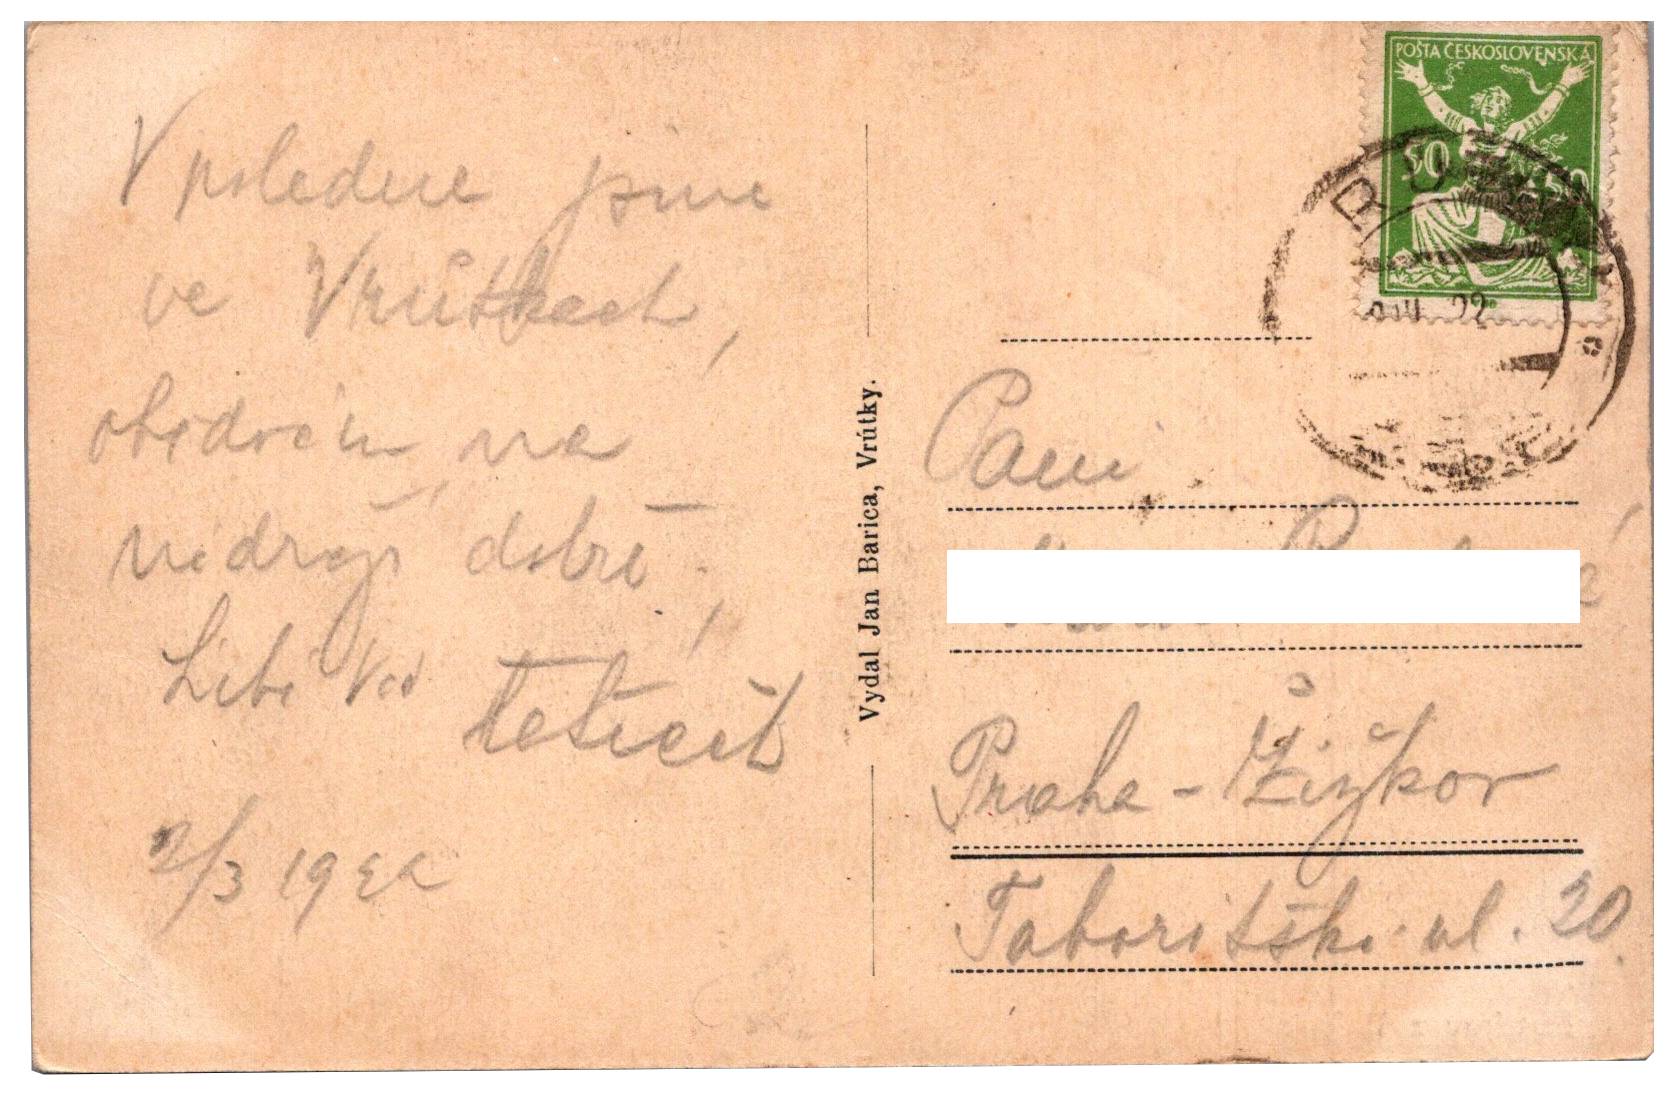 V poledne jsme
ve Vrútkách,
na
nádraží dobře.
Líbá Vás
2/3 1922
Vydal Jan Barica, Vrútky.
POŠTA ČESKOSLOVENSKÁ
50 50
Paní
Praha - Žižkov
Táboritská ul. 20